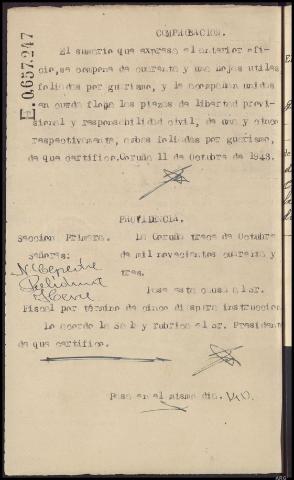 E.0.657.247
COMPROBACION.
El sumario que expresa el anterior ofi-
cio, se compone de cuarenta y una hojas utiles
foliadas por guarismo, y le acompañan unidas
en cuerda floja las piezas de libertad provi-
sional y responsabilidad civil, de una y cinco
respectivamente, ambas foliadas por guarismo,
de que certifico. Coruña 11 de Octubre de 1943.
PROVIDENCIA.
Seccion Primera. La Coruña trece de Octubre
Señores: de mil novecientos cuarenta y
tres.
Pase esta causa al Sr.
Fiscal por término de cinco dias para instruccion
Lo acordo la Sala y rubrica el Sr. Presidente
de que certifico.
Pasa en el mismo dia.